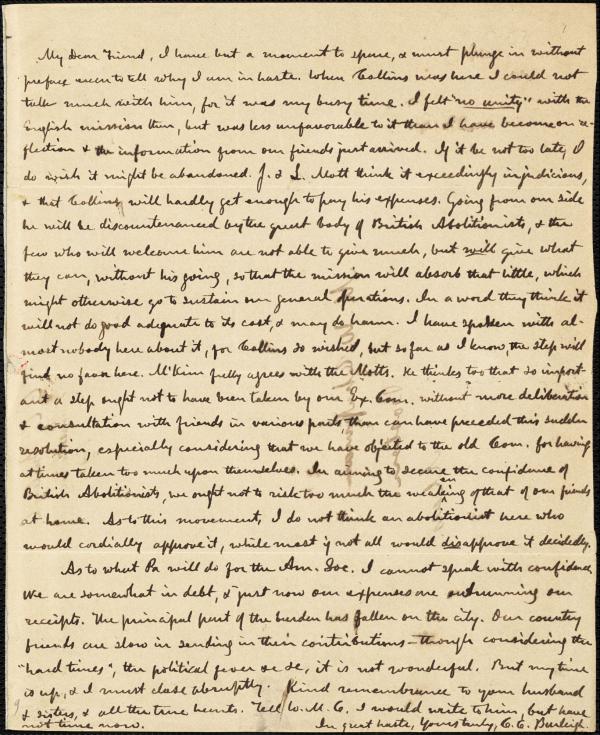 My Dear Friend, I have but a moment to spare, & must plunge in without
preface even to tell why I am in haste. When Collins was here I could not
talk much with him, for it was my busy time. I felt "no unity" with the
English mission then, but was less unfavorable to it than I have become on re-
flection & the information from our friends just arrived. If it be not too late, I
do wish it might be abandoned. J. & L. Mott think it exceedingly injudicious,
& that Collins will hardly get enough to pay his expenses. Going from our side
he will be discountenanced by the great body of British Abolitionists, & the
few who will welcome him are not able to give much, but will give what
they can, without his going, so that the mission will absorb that little, which
might otherwise go to sustain our general operations. In a word they think it
will not do good adequate to its cost, & may do harm. I have spoken with al-
most nobody here about it, for Collins so wished, but so far as I know, the step will
find no favor here. M'Kim fully agrees with the Motts. He thinks too that so import-
ant a step ought not to have been taken by our Ex. Com. without more deliberation
& consultation with friends in various parts than can have preceded this sudden
resolution, especially considering that we have objected to the old Com. for having
at times taken too much upon themselves. In aiming to secure the confidence of
British Abolitionists, we ought not to risk too much the weakening of that of our friends
at home. As to this movement, I do not think an abolitionist here who
would cordially approve it, while most if not all would disapprove it decidedly.
As to what Pa will do for the Am. Soc. I cannot speak with confidence.
We are somewhat in debt, & just now our expenses are outrunning our
receipts. The principal part of the burden has fallen on the city. Our country
friends are slow in sending in their contributions - though considering the
"hard times", the political fever &c &c, it is not wonderful. But my time
is up, & I must close abruptly. Kind remembrance to your husband
& sisters, & all the true hearts. Tell W. M. C. I would write to him, but have
not time now. In great haste, Yours truly, C. C. Burleigh.